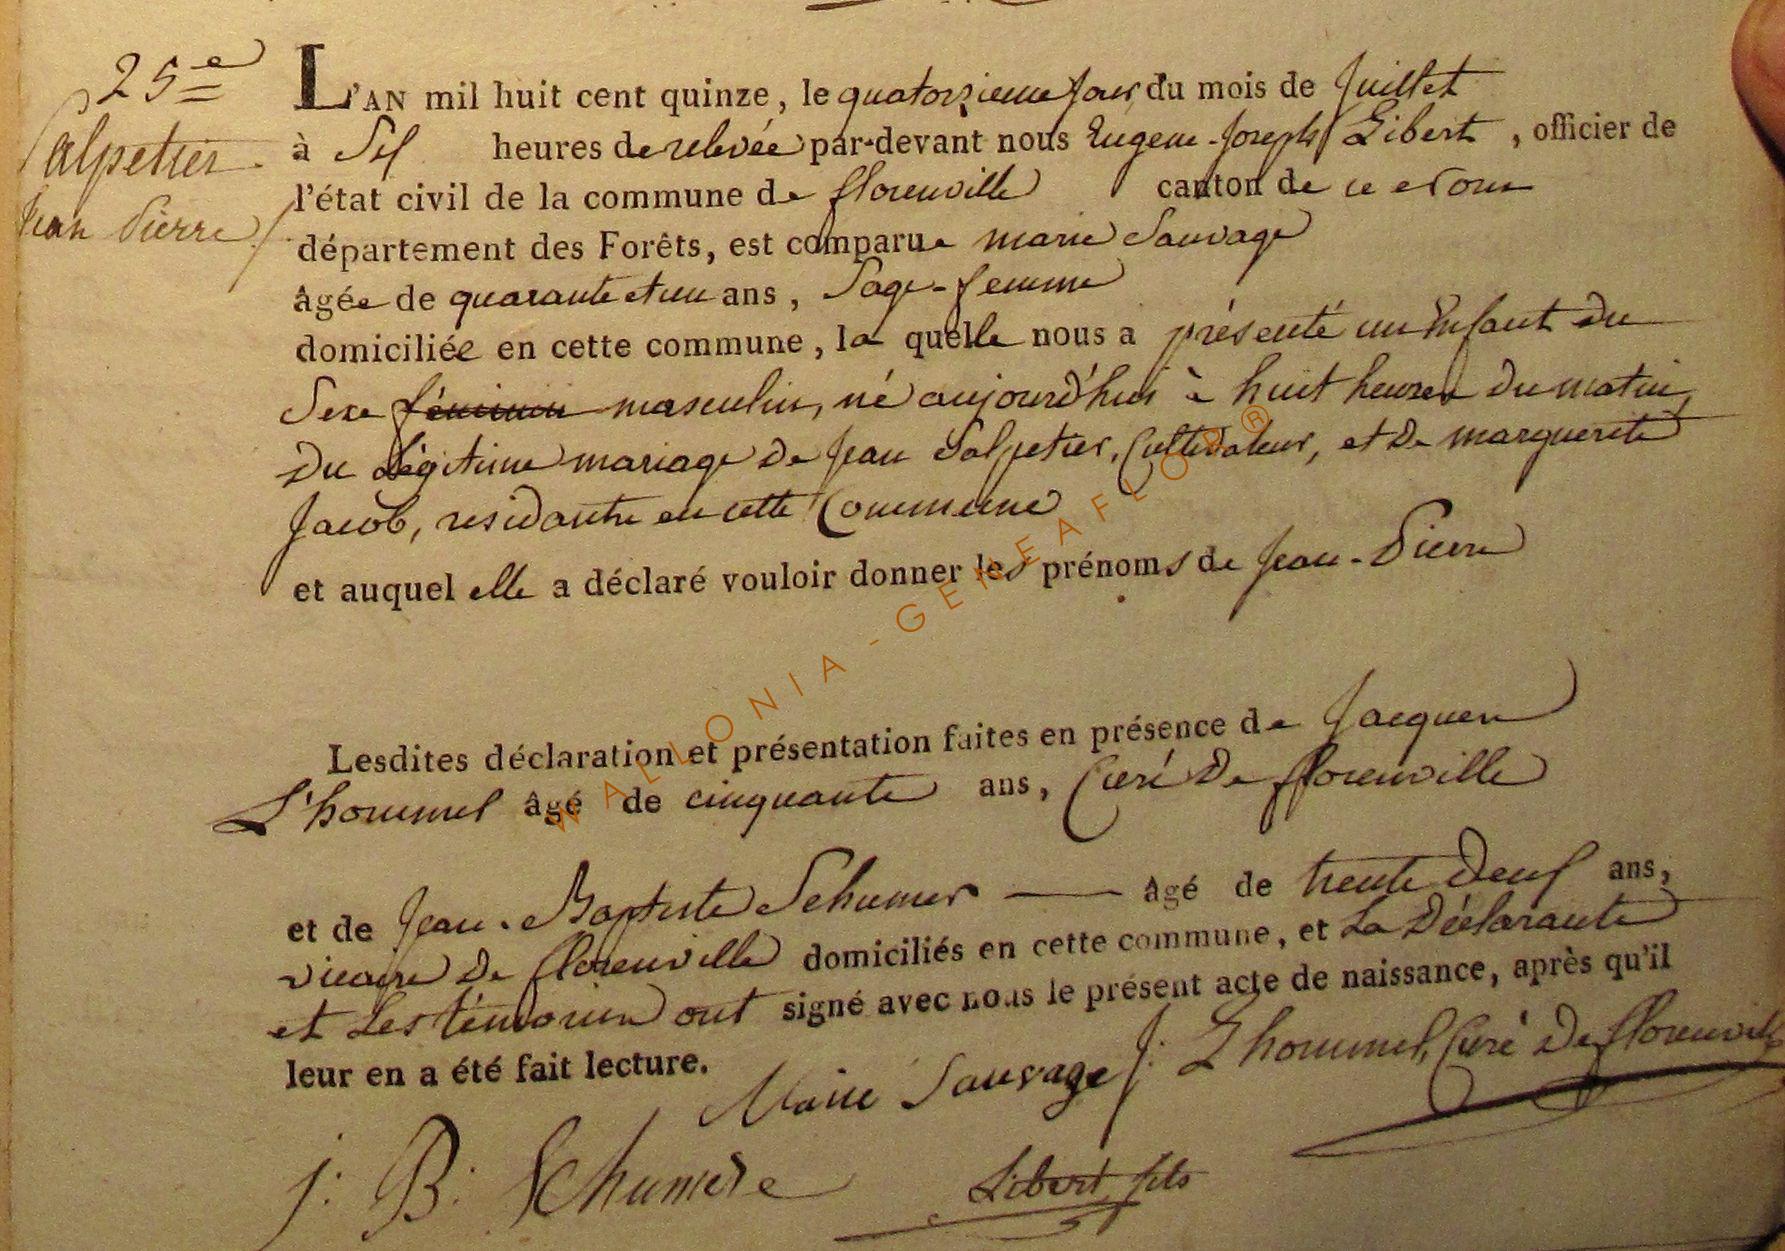 25e
Salpetier
Jean Pierre
L'AN mil huit cent quinze, le quatorzieme jour du mois de Juillet
à Six heures de relevée par-devant nous Eugene-Joseph Libert, officier de
l'état civil de la commune de florenville canton de ce nom
département des Forêts, est comparue marie Sauvage
âgée de quarante et un ans, Sage-femme
domiciliée en cette commune, la quelle nous a présenté un Enfant du
Sexe féminin masculin, né aujourd'hui à huit heures du matin,
du Légitime mariage de Jean Salpetier, Cultivateur, et de marguerite
Jacob, residante en cette Commune
et auquel elle a déclaré vouloir donner les prénoms de Jean-Pierre
Lesdites déclaration et présentation faites en présence de Jacques
L'hommel âgé de cinquante ans, Curé de florenville
et de Jean-Baptiste Schumer — âgé de trente deux ans,
vicaire de florenville domiciliés en cette commune, et La Déclarante
et Les témoins ont signé avec nous le présent acte de naissance, après qu'il
leur en a été fait lecture.
Marie Sauvage J: Lhommel, Curé de florenville
J: B: Schumere Libert fils
WALLONIA - GENEAFLOR®